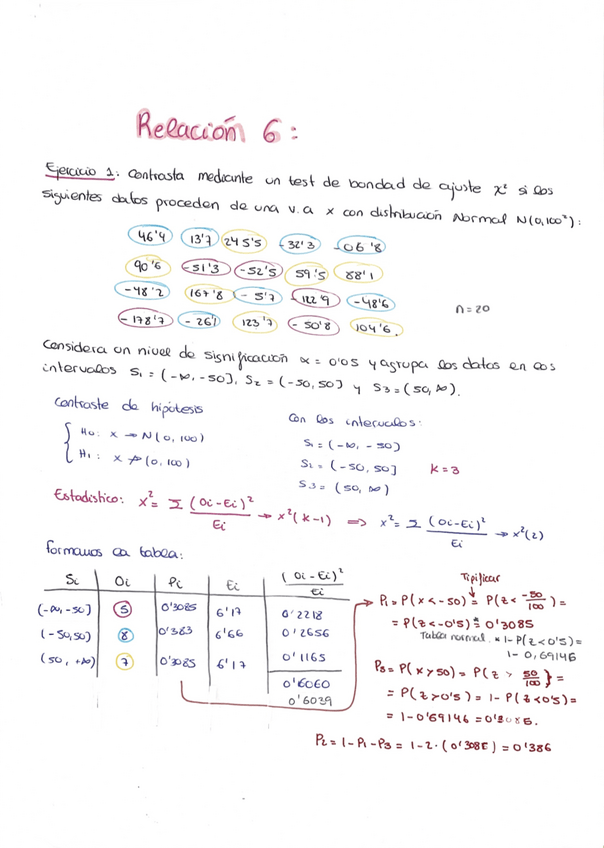 Relación 6:
Ejercicio 1: Contrasta mediante un test de bondad de ajuste χ² si los
siguientes datos proceden de una v.a x con distribución Normal N(0,100²):
46'4 13'7 245'5 -32'3 -06'8
90'6 -51'3 -52'5 59'5 88'1
-48'2 167'8 -5'7 -122'9 -48'6
-178'7 -26'1 123'7 -50'8 104'6.
n=20
Considera un nivel de significación α = 0'05 y agrupa los datos en los
intervalos S₁ = (-∞, -50], S₂ = (-50, 50] y S₃ = (50, ∞).
Contraste de hipótesis
H₀: x → N(0, 100)
H₁: x ↛ (0, 100)
Con los intervalos:
S₁ = (-∞, -50]
S₂ = (-50, 50] K=3
S₃ = (50, ∞)
Estadístico: χ² = Σ (Oi-Ei)²/Ei → χ²(K-1) ⇒ χ² = Σ (Oi-Ei)²/Ei → χ²(2)
formamos la tabla:
Si Oi Pi Ei (Oi-Ei)²/Ei
(-∞, -50] 5 0'3085 6'17 0'2218
(-50, 50) 8 0'383 6'66 0'2656
(50, +∞) 7 0'3085 6'17 0'1165
0'6060
0'6039
Tipificar
P₁ = P(x<-50) = P(z< -50/100) =
= P(z<-0'5) = 0'3085
Tabla normal. * 1-P(z<0'5)=
1-0,69146
P₃ = P(x>50) = P(z > 50/100) =
= P(z>0'5) = 1-P(z<0'5)=
= 1-0'69146 = 0'3085.
P₂ = 1-P₁-P₃ = 1-2·(0'3085) = 0'386